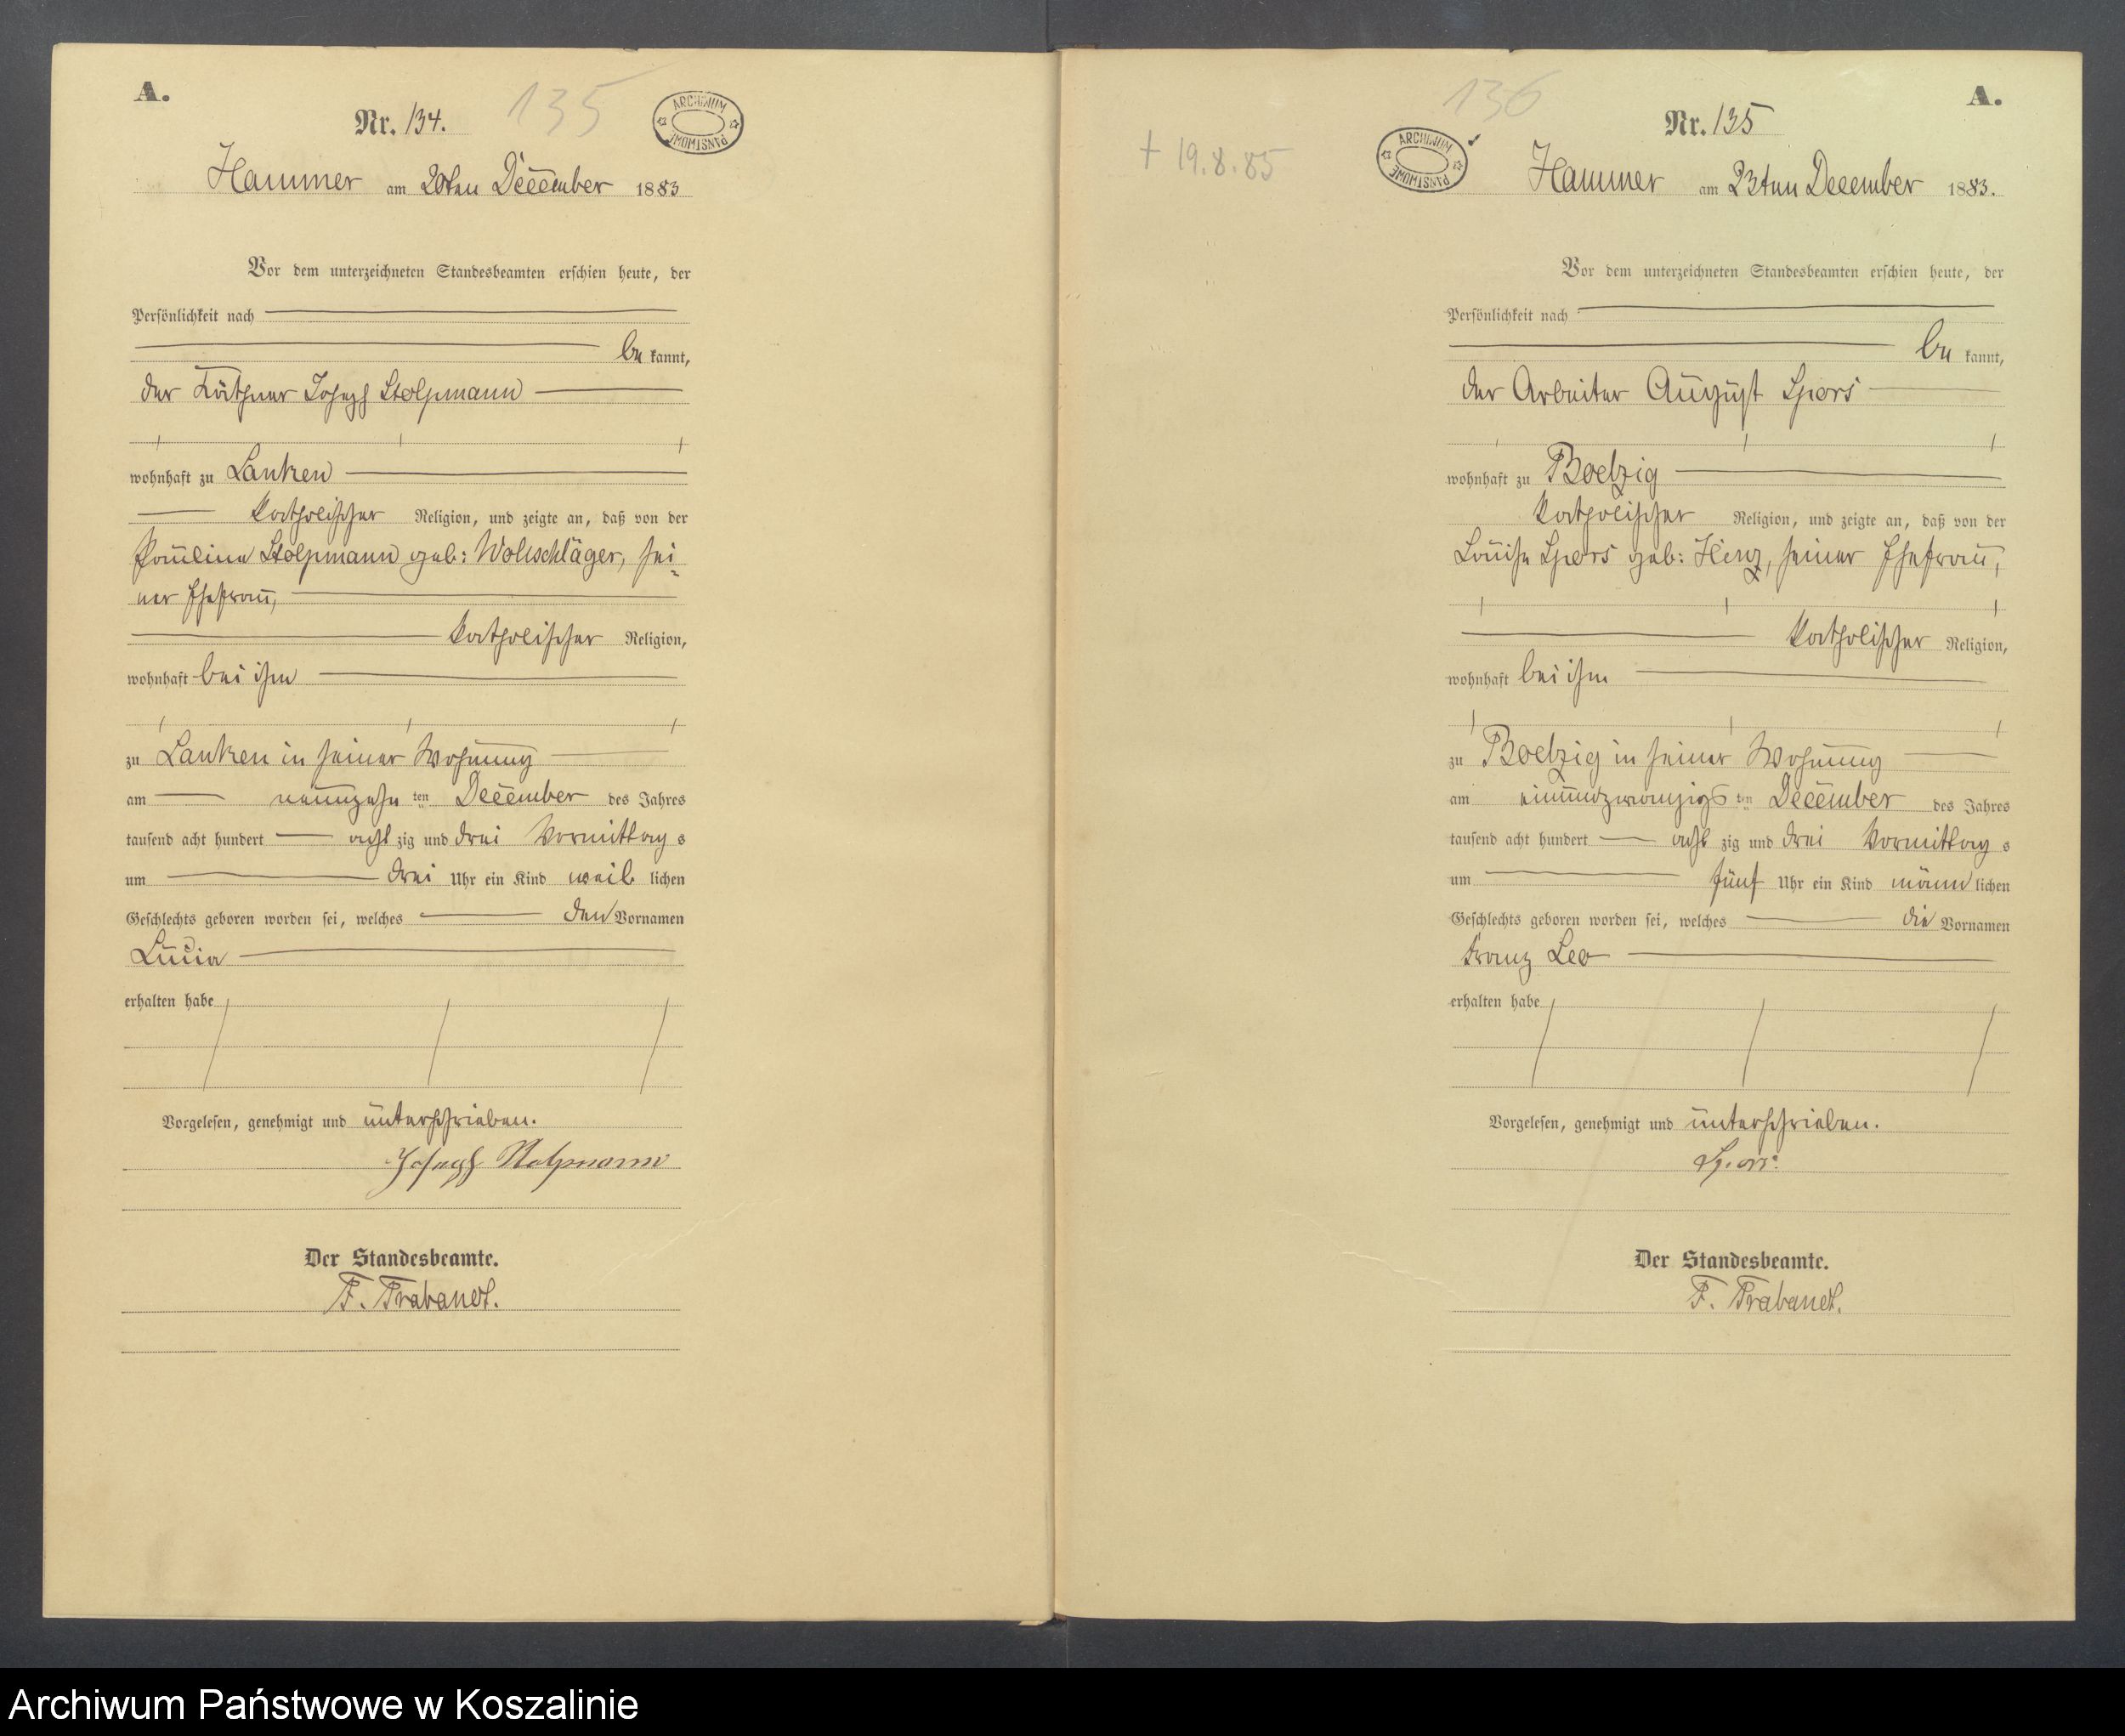 A.
135
Nr. 134.
ARCHIWUM PAŃSTWOWE
Hammer am 20ten December 1883
Vor dem unterzeichneten Standesbeamten erschien heute, der
Persönlichkeit nach
be kannt,
der Käthner Joseph Stolpmann
wohnhaft zu Lanken
katholischer Religion, und zeigte an, daß von der
Pauline Stolpmann geb: Wollschläger, sei-
ner Ehefrau,
katholischer Religion,
wohnhaft bei ihm
zu Lanken in seiner Wohnung
am neunzehn ten December des Jahres
tausend acht hundert acht zig und drei Vormittag s
um drei Uhr ein Kind weib lichen
Geschlechts geboren worden sei, welches den Vornamen
Lucia
erhalten habe
Vorgelesen, genehmigt und unterschrieben.
Joseph Stolpmann
Der Standesbeamte.
F. Trabandt.
136
A.
Nr. 135
+ 19.8.85
ARCHIWUM PAŃSTWOWE
Hammer am 23ten December 1883.
Vor dem unterzeichneten Standesbeamten erschien heute, der
Persönlichkeit nach
be kannt,
der Arbeiter August Spors
wohnhaft zu Boelzig
katholischer Religion, und zeigte an, daß von der
Louise Spors geb: Hinz, seiner Ehefrau,
katholischer Religion,
wohnhaft bei ihm
zu Boelzig in seiner Wohnung
am einundzwanzigs ten December des Jahres
tausend acht hundert acht zig und drei Vormittag s
um fünf Uhr ein Kind männ lichen
Geschlechts geboren worden sei, welches die Vornamen
Franz Leo
erhalten habe
Vorgelesen, genehmigt und unterschrieben.
Spors.
Der Standesbeamte.
F. Trabandt.
Archiwum Państwowe w Koszalinie